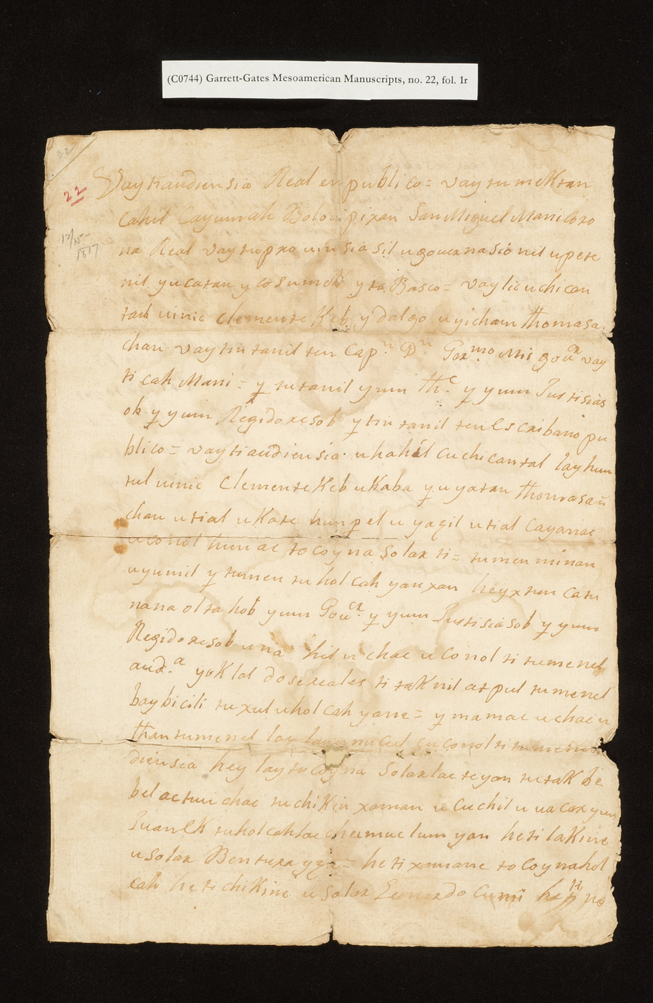 (C0744) Garrett-Gates Mesoamerican Manuscripts, no. 22, fol. 1r
22
22
12/15-
1817
Vay tiaudiensia Real en publico = vay tu mektan
cahil Cayumah Bolonpixan San Miguel Mani Coro
na Real vay tu prouinsiasil u gouernasionil u pete
nil yucatan y cosumel y ta Basco = vay licuchican
tail uinic Clemente Keb ydalgo u yicham thomasa
chan vay tin tanil ten Capn Dn
ti cah Mani = y tu tanil yum thē y yum Justisias
ob y yum Regidoresob y tin tanil ten Escribano pu
blico = vay tiaudiensia u hahil cuchicantal lay hun
tul uinic Clemente Keb u Kaba y u yatan thomasa
chan u tial u Kate hunpel u yaqil u tial Cayanac
u conol hun ac to coy na Solar ti = tumen minan
u yumil y tumen tu hol cah yan xan heyx ten catu
nana oltahob yum Gour y yum Justisiasob y yum
Regidoresob u na hil u chac u conol ti tumenel
aud.a yoklal dose reales ti taknil at pul tumenel
bay bicili tu xul u hol cah yane = y mamac u chac u
than tumenel lay u conol ti tumen
diensia hey lay to coy na Solar lae te yan tu tak be
bel actun chac tu chikin xaman u Cuchil u ua cax yum
Juan Ek tu hol cah lae chumuc lum yan he ti lakine
u Solar Bentura = he ti xmane to coy na hol
cah he ti chikine u Solar Leonardo Cumi